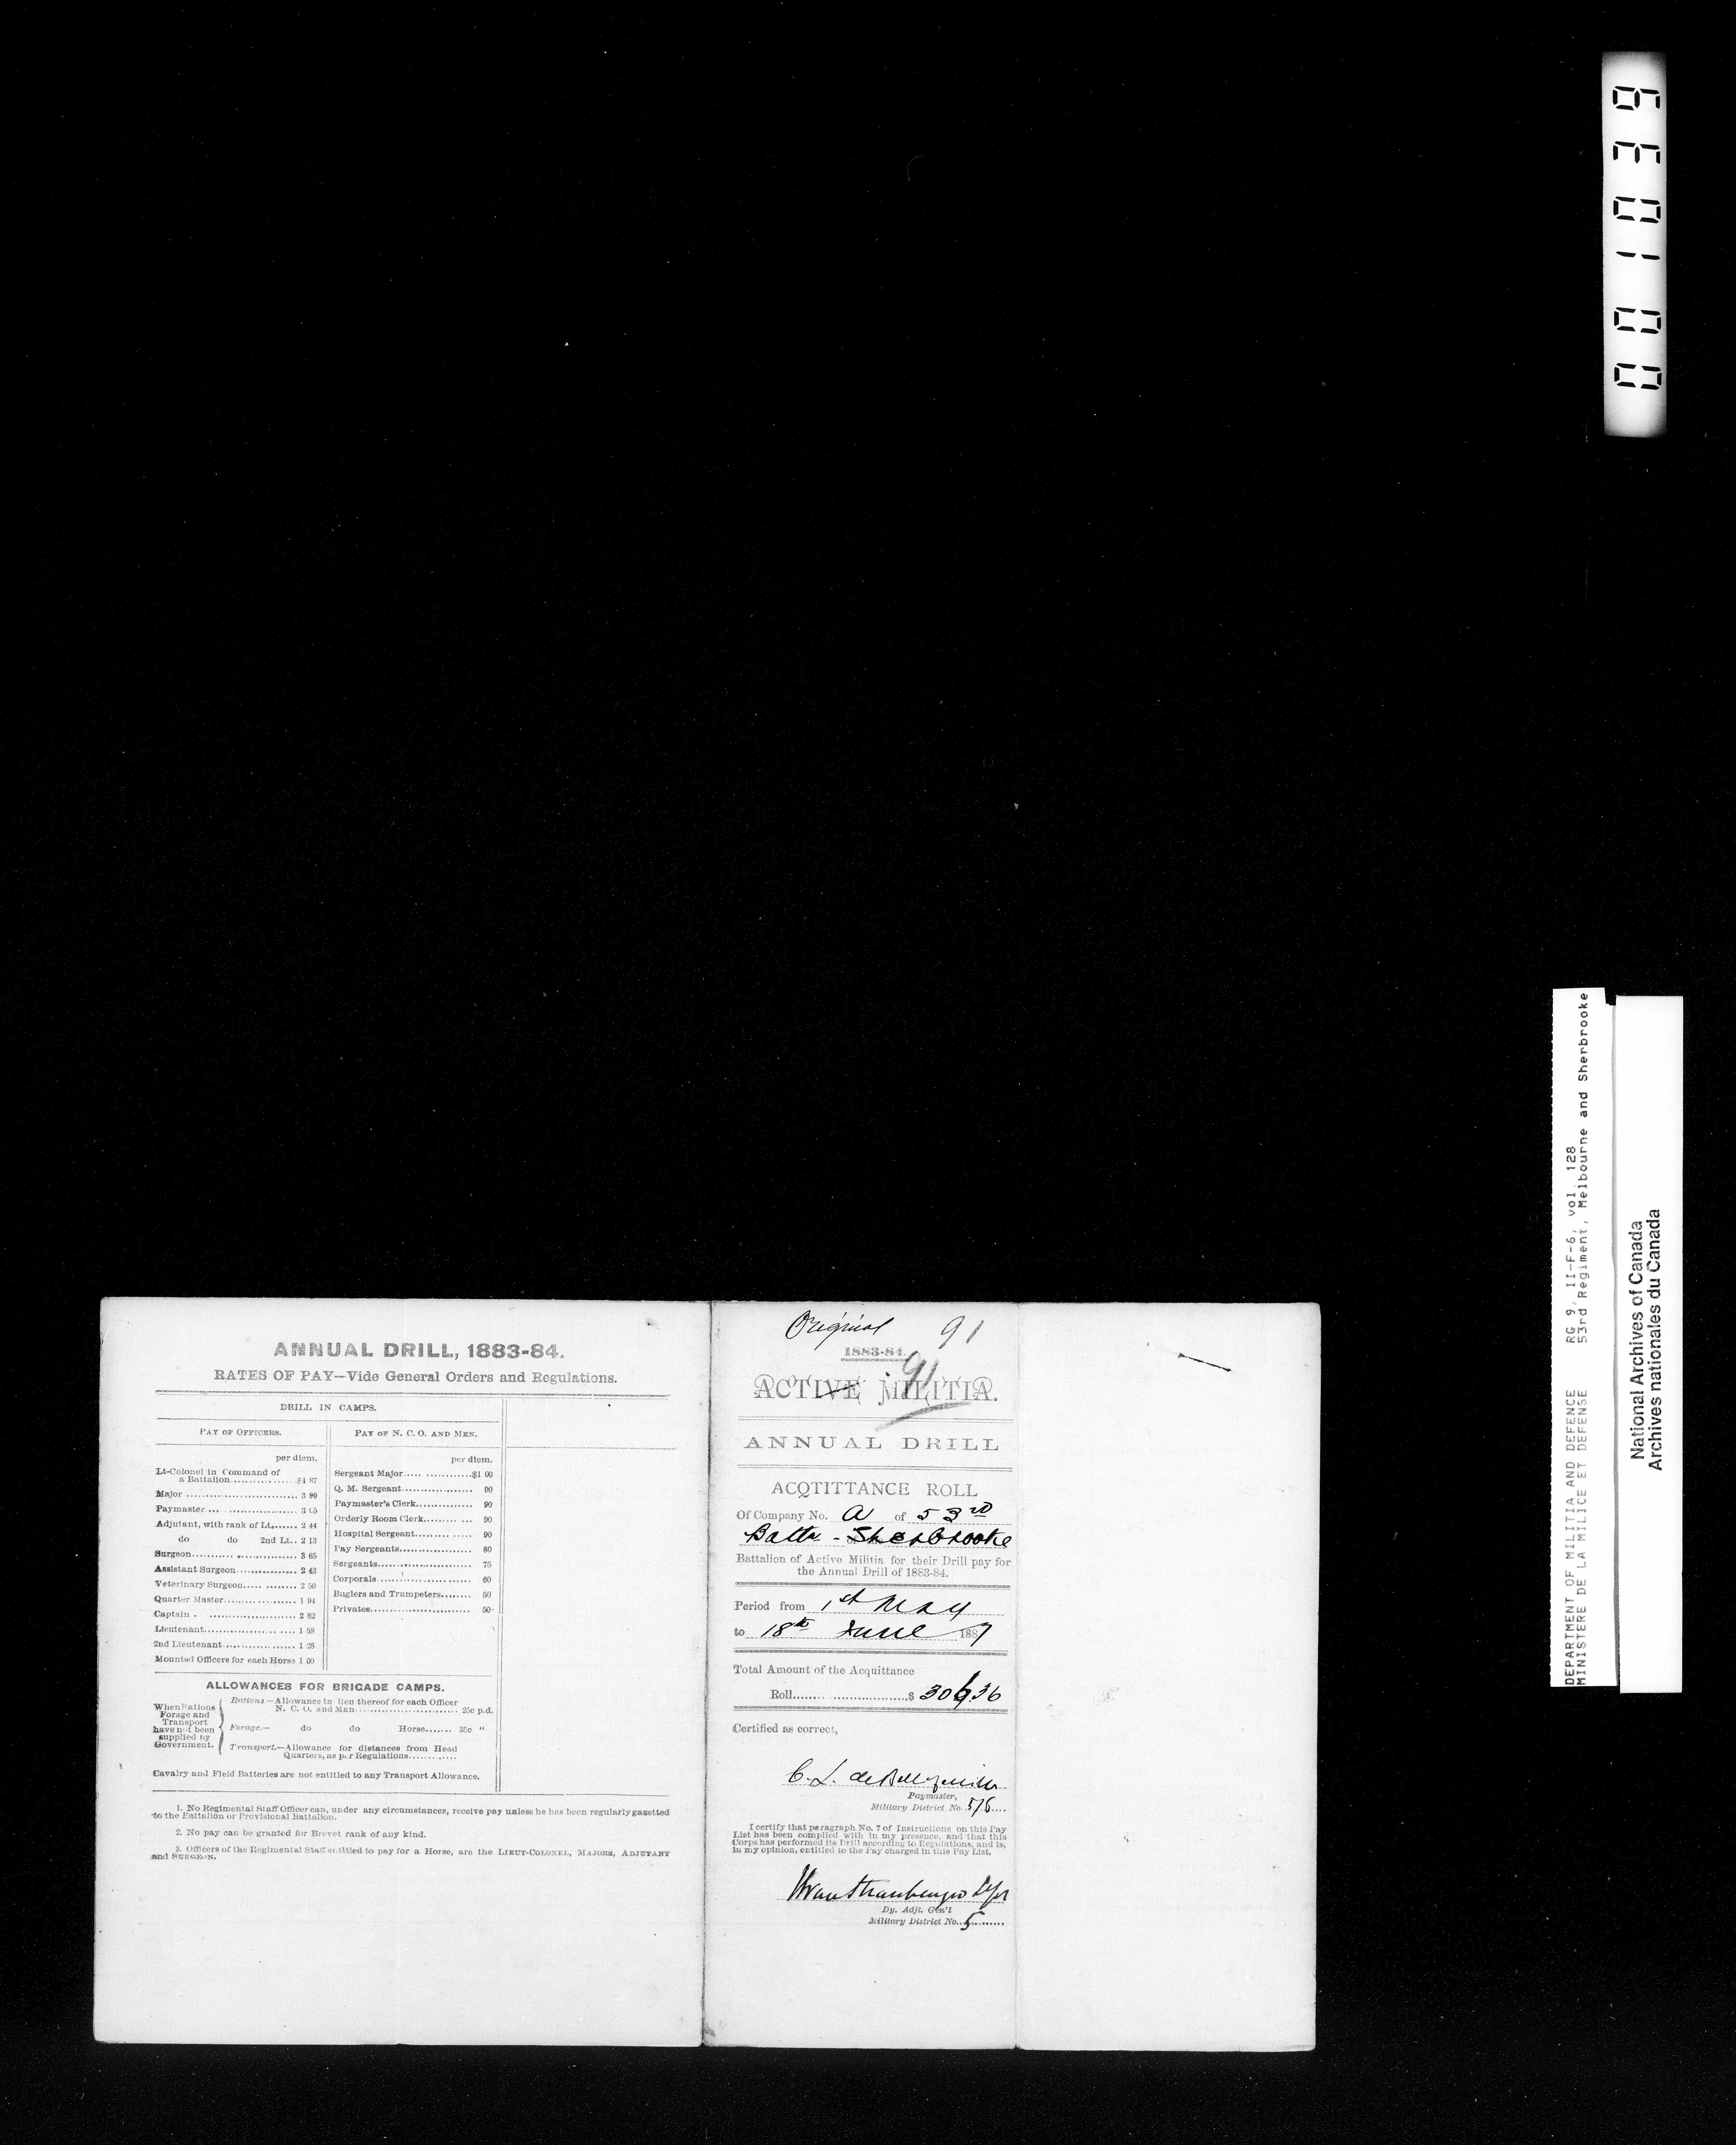 ANNUAL DRILL, 1883-84.
RATES OF PAY—Vide General Orders and Regulations.
DRILL IN CAMPS.
PAY OF OFFICERS.
per diem.
Lt-Colonel in Command of
a Battalion................$4 87
Major................ 3 90
Paymaster................ 3 05
Adjutant, with rank of Lt....... 2 44
do do 2nd Lt.. 2 13
Surgeon................ 3 65
Assistant Surgeon................ 2 43
Veterinary Surgeon................ 2 50
Quarter Master................ 1 94
Captain................ 2 82
Lieutenant................ 1 58
2nd Lieutenant................ 1 28
Mounted Officers for each Horse 1 00
PAY OF N. C. O. AND MEN.
per diem.
Sergeant Major................$1 00
Q. M. Sergeant................ 90
Paymaster's Clerk................ 90
Orderly Room Clerk................ 90
Hospital Sergeant................ 90
Pay Sergeants................ 80
Sergeants................ 75
Corporals................ 60
Buglers and Trumpeters........ 50
Privates................ 50
ALLOWANCES FOR BRIGADE CAMPS.
When Rations
Forage and
Transport
have not been
supplied by
Government.
Rations.—Allowance in lieu thereof for each Officer
N. C. O. and Man................ 25c p.d.
Forage.— do do Horse....... 35c "
Transport.—Allowance for distances from Head
Quarters, as per Regulations............
Cavalry and Field Batteries are not entitled to any Transport Allowance.
1. No Regimental Staff Officer can, under any circumstances, receive pay unless he has been regularly gazetted
to the Battalion or Provisional Battalion.
2. No pay can be granted for Brevet rank of any kind.
3. Officers of the Regimental Staff entitled to pay for a Horse, are the LIEUT-COLONEL, MAJORS, ADJUTANT
and SURGEON.
Original 91
1883-84.
91
ACTIVE MILITIA.
ANNUAL DRILL
ACQTITTANCE ROLL
Of Company No. A of 53rd
Battn - Sherbrooke
Battalion of Active Militia for their Drill pay for
the Annual Drill of 1883-84.
Period from 1st May
to 18th June 1887
Total Amount of the Acquittance
Roll................$ 306.36
Certified as correct,
C. L. de Bellefeuille
Paymaster,
Military District No. 5/6
I certify that paragraph No. 7 of Instructions on this Pay
List has been complied with in my presence, and that this
Corps has performed its Drill according to Regulations, and is,
in my opinion, entitled to the Pay charged in this Pay List.
Dy. Adjt. Gen'l
Military District No. 5
001039
DEPARTMENT OF MILITIA AND DEFENCE RG 9, II-F-6, vol. 128
MINISTERE DE LA MILICE ET DEFENSE 53rd Regiment, Melbourne and Sherbrooke
National Archives of Canada
Archives nationales du Canada